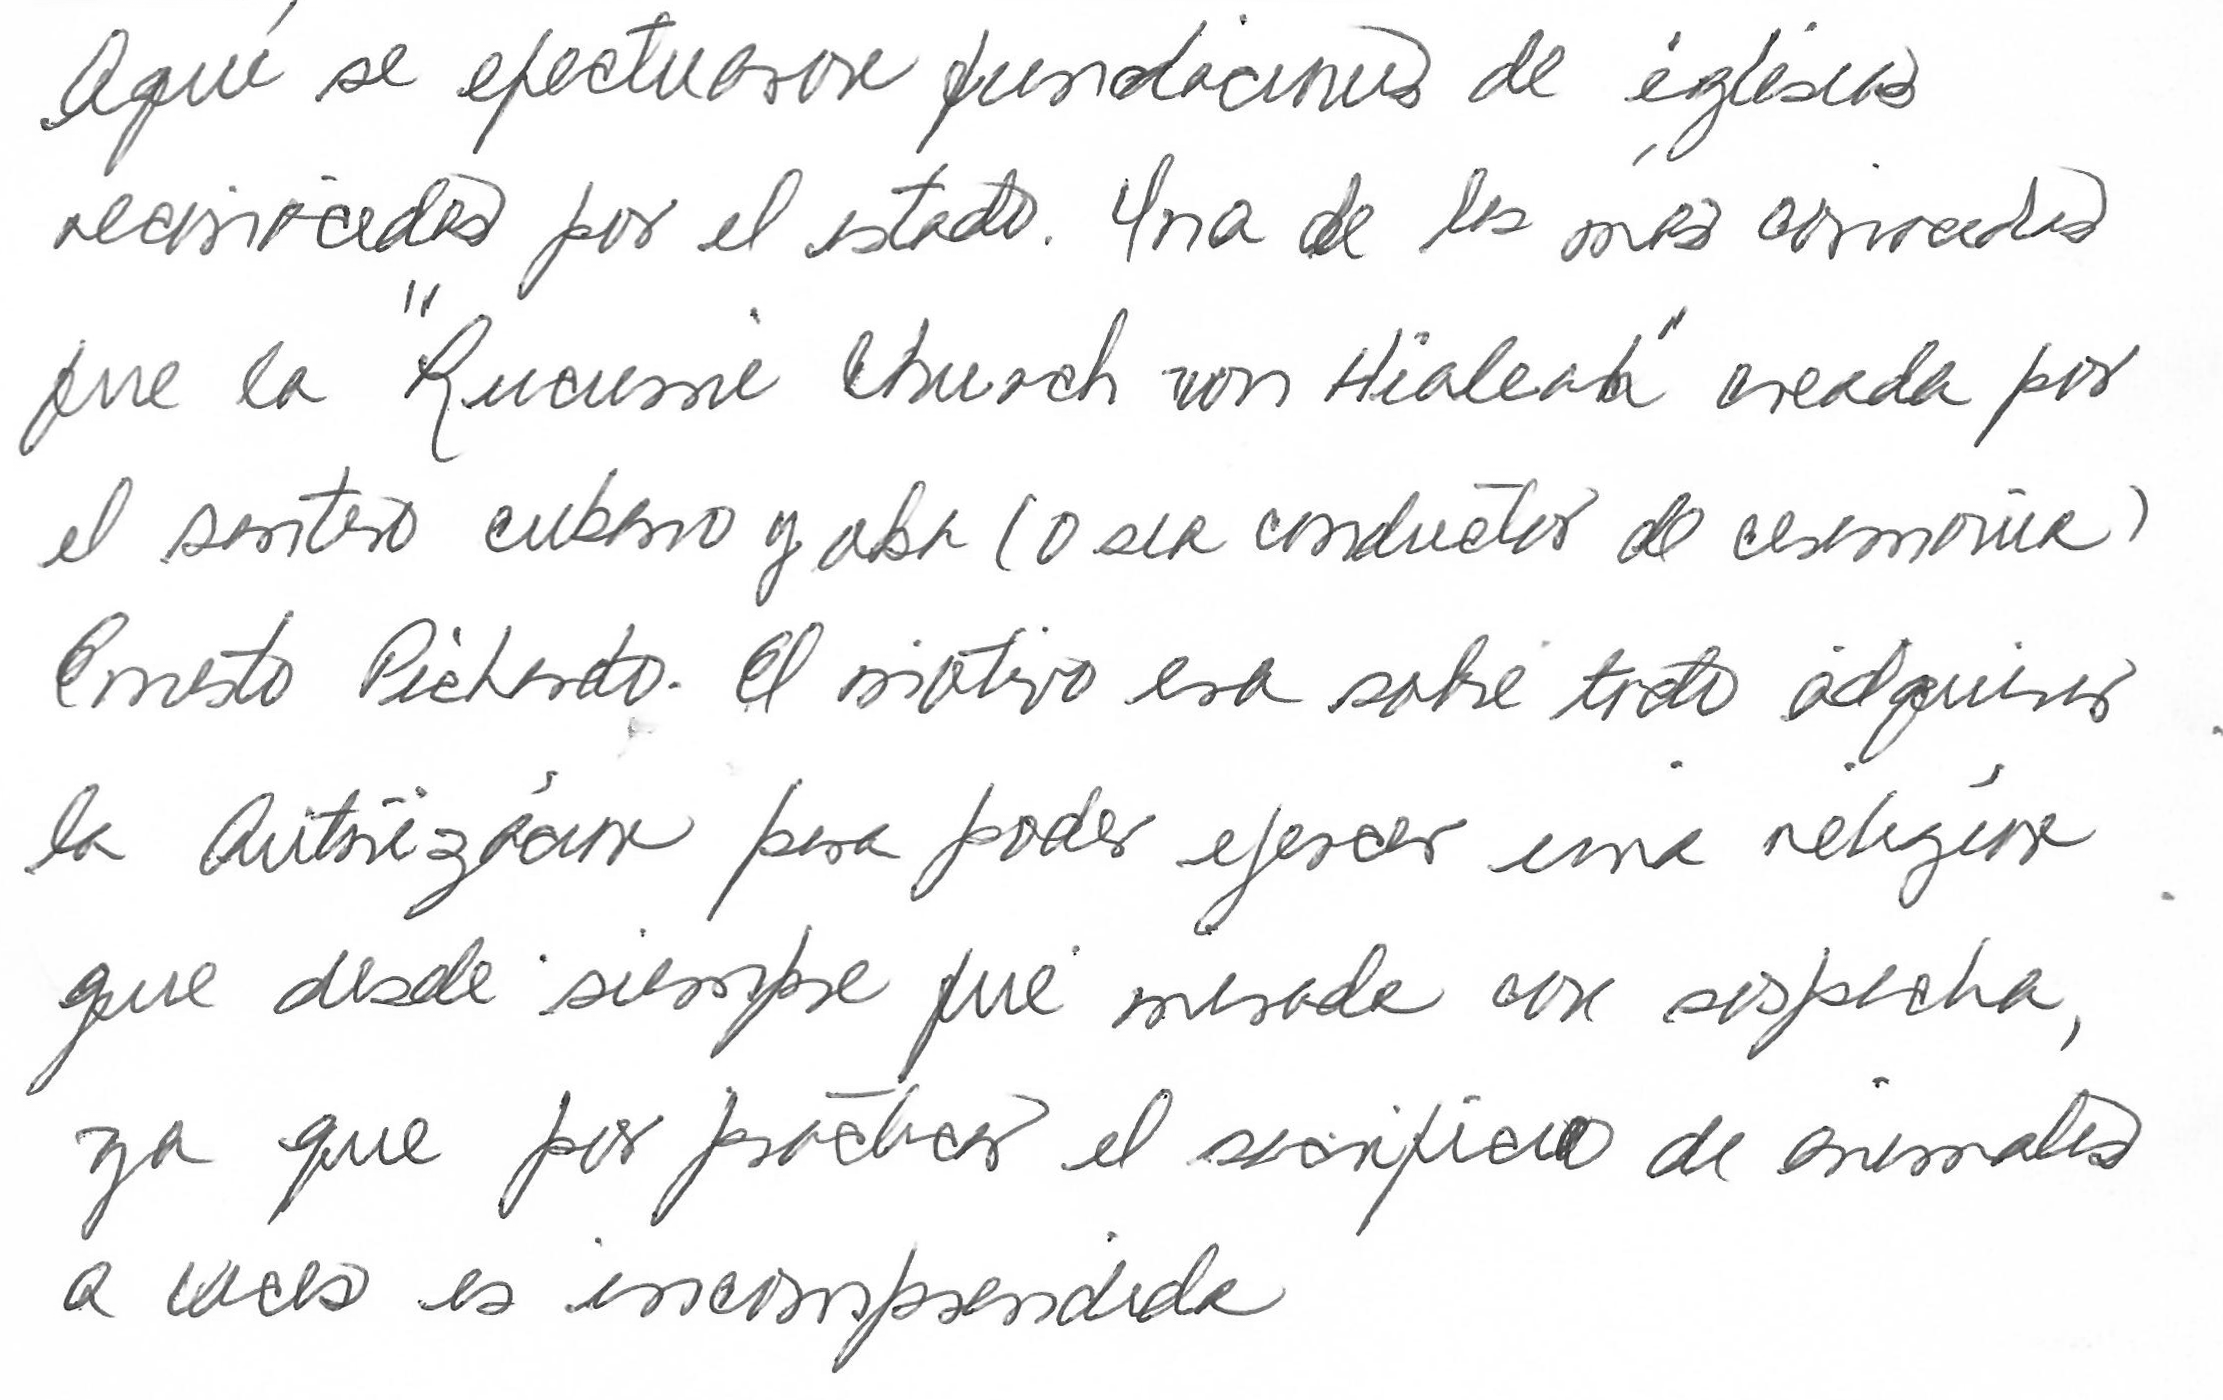 Aquí se efectuaron fundaciones de iglesias
reconocidas por el estado. Una de las más conocidas
fue la "Rucumi Church von Hialeah" creada por
el santero cubano y oba (o sea conductor de ceremonia)
Ernesto Pichardo. El motivo era sobre todo adquirir
la autorización para poder ejercer una religión
que desde siempre fue mirada con sospecha,
ya que por practicar el sacrificio de animales
a veces es incomprendida